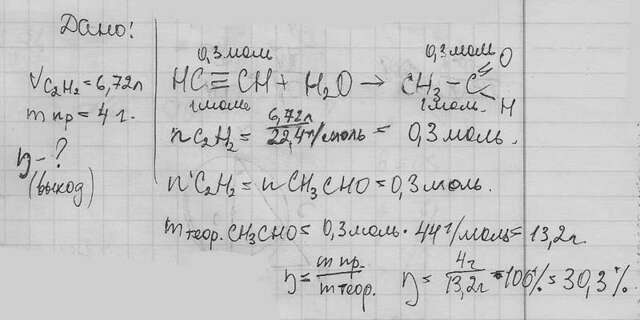 Дано:
V C₂H₂ = 6,72л
m пр = 4 г.
η - ?
(выход)
0,3 моль 0,3 моль
HC≡CH + H₂O → CH₃ – C O H
1 моль 1 моль
n C₂H₂ = 6,72л / 22,4 л/моль = 0,3 моль.
n C₂H₂ = n CH₃CHO = 0,3 моль.
m теор. CH₃CHO = 0,3 моль · 44 г/моль = 13,2г.
η = m пр. / m теор. η = 4г / 13,2г · 100% = 30,3%.